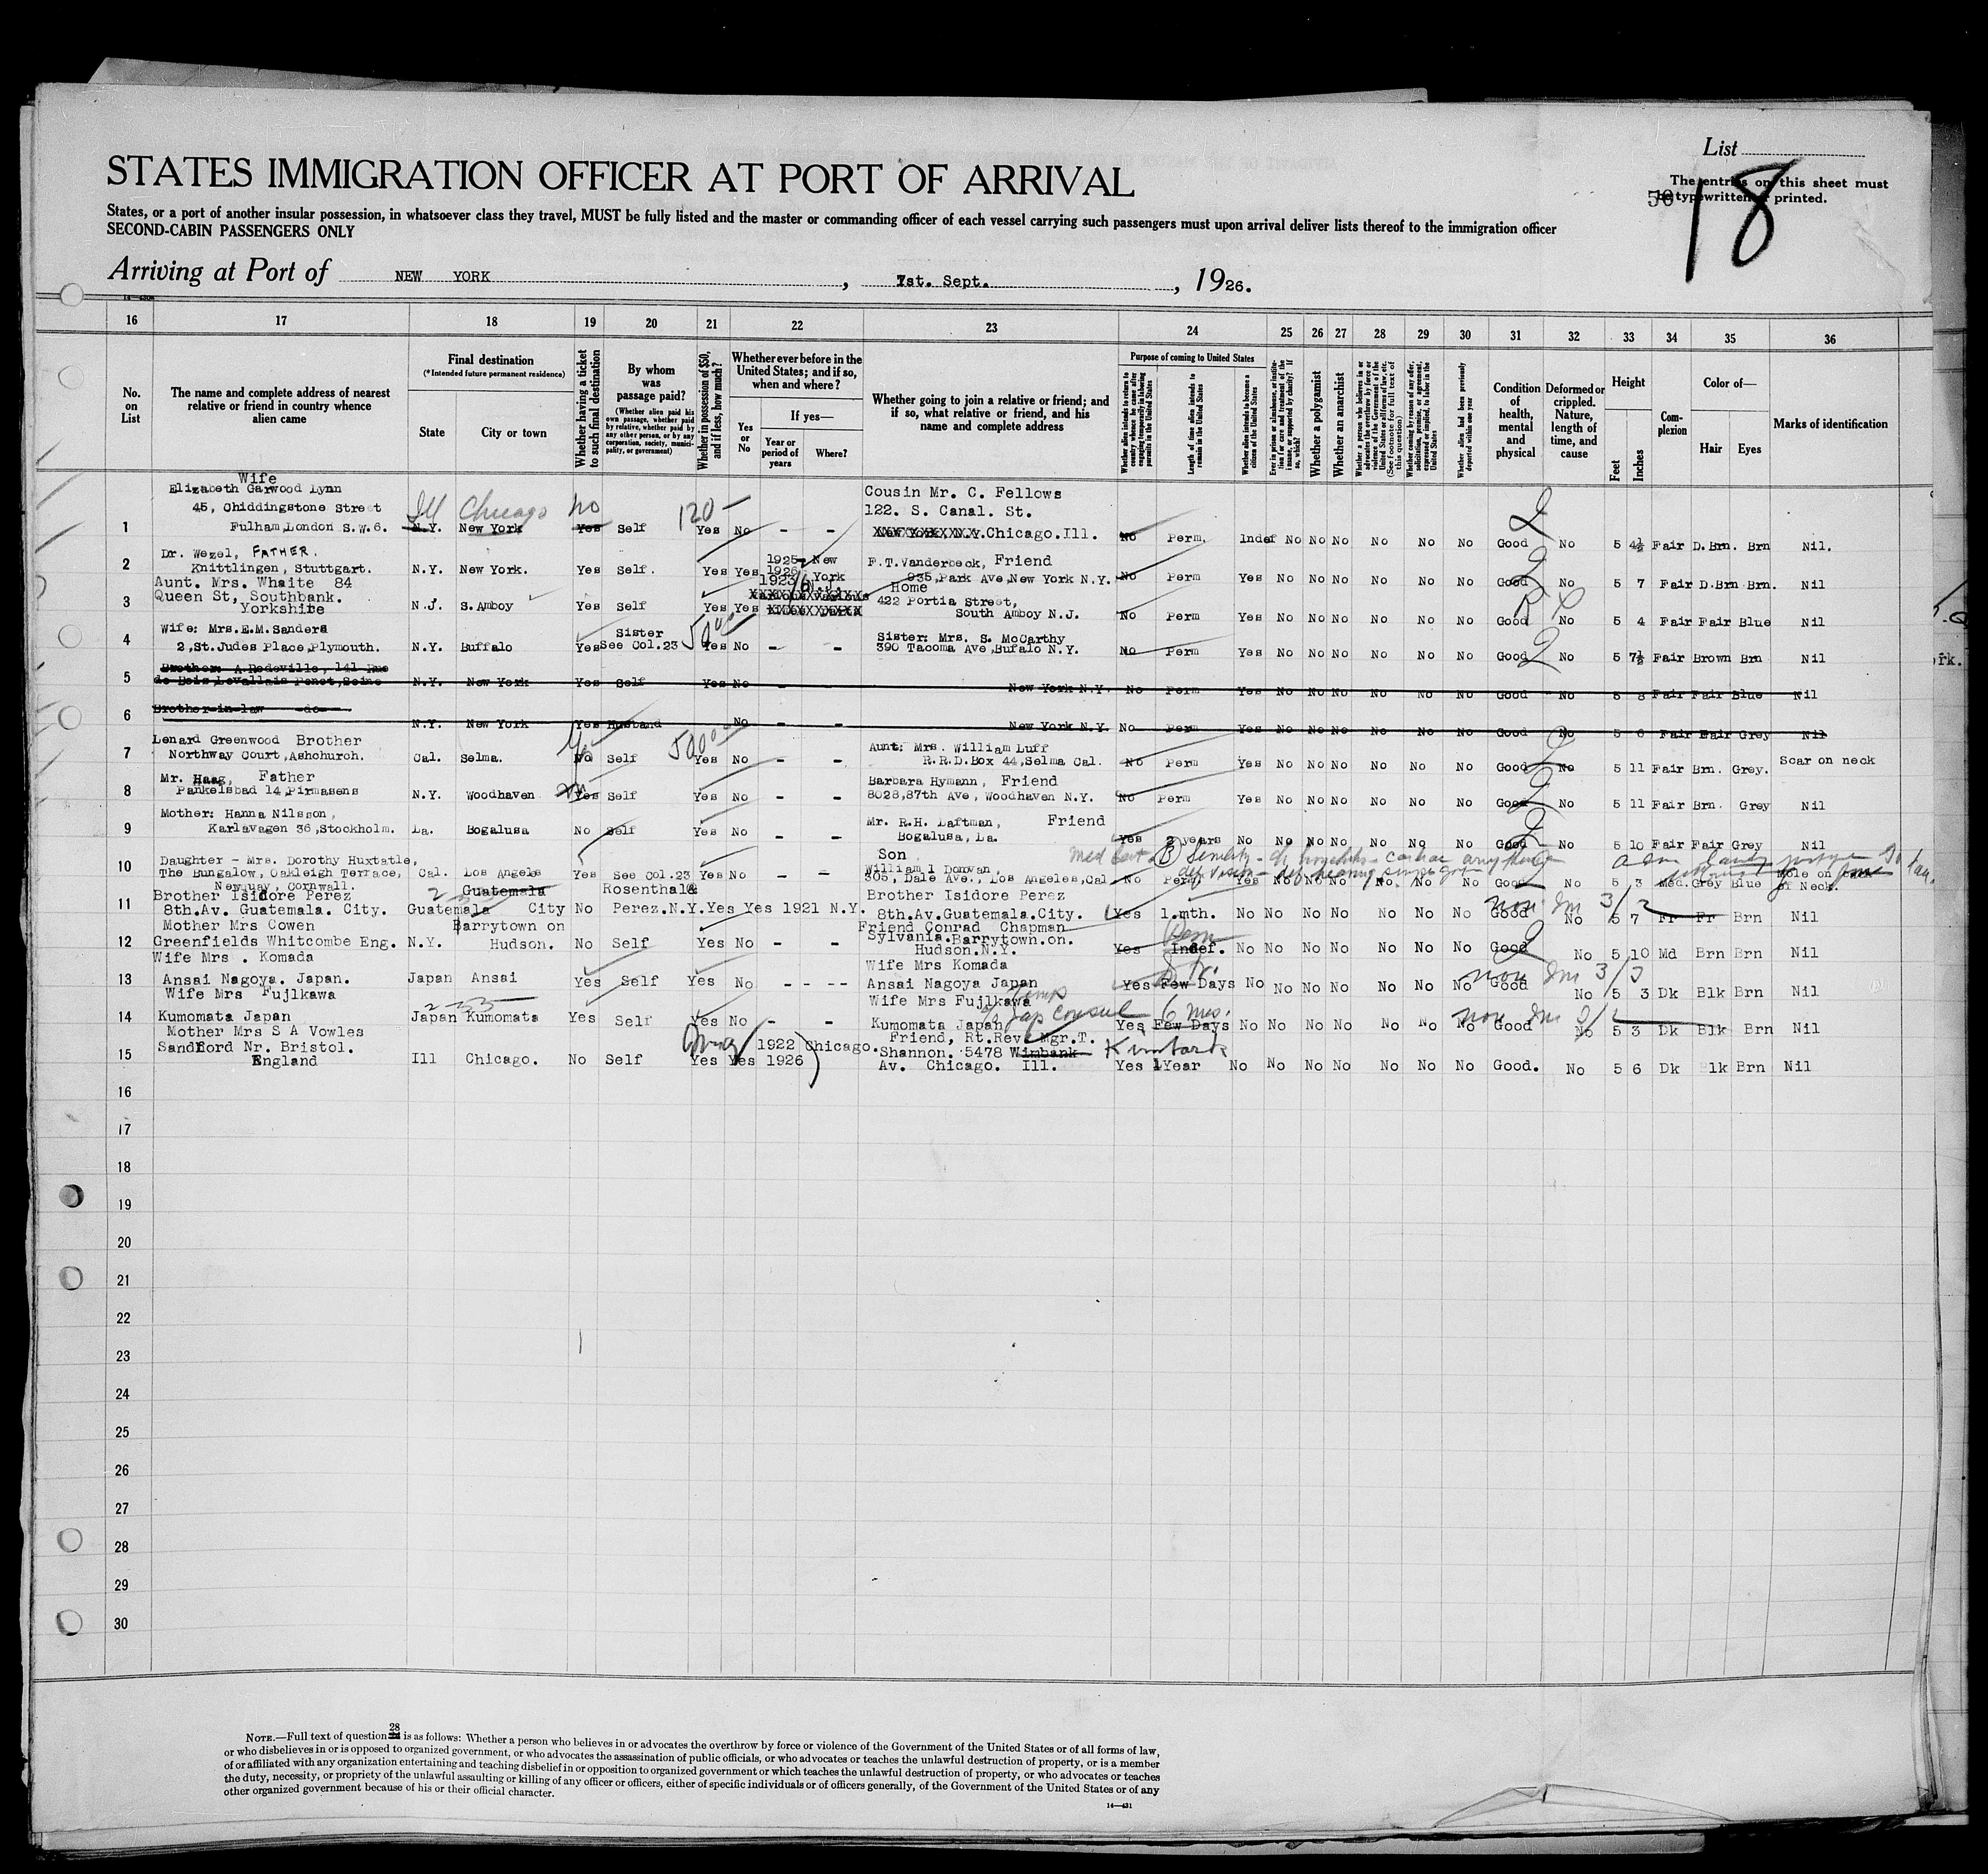 List
The entries on this sheet must
be typewritten or printed.
56
18
STATES IMMIGRATION OFFICER AT PORT OF ARRIVAL
States, or a port of another insular possession, in whatsoever class they travel, MUST be fully listed and the master or commanding officer of each vessel carrying such passengers must upon arrival deliver lists thereof to the immigration officer
SECOND-CABIN PASSENGERS ONLY
Arriving at Port of NEW YORK, 1st. Sept., 1926.
16 17 18 19 20 21 22 23 24 25 26 27 28 29 30 31 32 33 34 35 36
No. on List
The name and complete address of nearest relative or friend in country whence alien came
Final destination
(*Intended future permanent residence)
State
City or town
Whether having a ticket to such final destination
By whom was passage paid?
(Whether alien paid his own passage, whether paid by relative, whether paid by any other person, or by any corporation, society, municipality, or government)
Whether in possession of $50, and if less, how much?
Whether ever before in the United States; and if so, when and where?
Yes or No
If yes—
Year or period of years
Where?
Whether going to join a relative or friend; and if so, what relative or friend, and his name and complete address
Purpose of coming to United States
Whether alien intends to return to country whence he came after engaging temporarily in laboring pursuits in the United States
Length of time alien intends to remain in the United States
Whether alien intends to become a citizen of the United States
Ever in prison or almshouse, or institution for care and treatment of the insane, or supported by charity? If so, which?
Whether a polygamist
Whether an anarchist
Whether a person who believes in or advocates the overthrow by force or violence of the Government of the United States or all forms of law, etc. (See footnote for full text of this question)
Whether coming by reason of any offer, solicitation, promise, or agreement, expressed or implied, to labor in the United States
Whether alien had been previously deported within one year
Condition of health, mental and physical
Deformed or crippled. Nature, length of time, and cause
Height
Feet
Inches
Complexion
Color of—
Hair
Eyes
Marks of identification
Wife
Elizabeth Garwood Lynn Cousin Mr. C. Fellows
45, Chiddingstone Street Ill Chicago no 120- 122. S. Canal. St.
1 Fulham, London S.W.6. N.Y. New York Yes Self Yes No - - Chicago. Ill. No Perm. Indef No No No No No No Good No 5 4½ Fair D.Brn. Brn Nil.
Dr. Wezel, FATHER. 1925- New F.T.Vanderbeck, Friend
2 Knittlingen, Stuttgart. N.Y. New York. Yes Self. Yes Yes 1926 York 935, Park Ave, New York N.Y. No Perm Yes No No No No No No Good No 5 7 Fair D.Brn Brn. Nil
Aunt. Mrs. Whaite 84 1923/6 N.J. Home
3 Queen St, Southbank. N.J. S. Amboy Yes Self Yes Yes 422 Portia Street,
Yorkshire South Amboy N.J. No Perm Yes No No No No No No Good No 5 4 Fair Fair Blue Nil
Wife: Mrs.E.M.Sanders Sister 50 Sister: Mrs. S. McCarthy
4 2, St.Judes Place, Plymouth. N.Y. Buffalo Yes See Col.23 Yes No - - 390 Tacoma Ave, Bufalo N.Y. No Perm Yes No No No No No No Good No 5 7½ Fair Brown Brn Nil
Brother: A.Redeville, 141 Rue
5 de Bois, Levallais Penet, Seine N.Y. New York Yes Self Yes No - - New York N.Y. No Perm Yes No No No No No No Good No 5 8 Fair Fair Blue Nil
Brother-in-law -do-
6 N.Y. New York Yes Husband No - - New York N.Y. No Perm Yes No No No No No No Good No 5 6 Fair Fair Grey Nil
Lenard Greenwood Brother Yes 5000 Aunt: Mrs. William Luff
7 Northway Court, Ashchurch. Cal. Selma. No Self Yes No - - R.R.D.Box 44, Selma Cal. No Perm Yes No No No No No No Good No 5 11 Fair Brn. Grey. Scar on neck
Mr. Haag, Father Barbara Hymann, Friend
8 Pankelsbad 14, Pirmasens N.Y. Woodhaven Yes Self Yes No - - 8028, 87th Ave, Woodhaven N.Y. No Perm Yes No No No No No No Good No 5 11 Fair Brn. Grey Nil
Mother: Hanna Nilsson, Mr. R.H. Laftman, Friend
9 Karlavagen 36, Stockholm. La. Bogalusa No Self Yes No - - Bogalusa, La. Yes 2 years No No No No No No No Good No 5 10 Fair Fair Grey Nil
Daughter - Mrs. Dorothy Huxtable, Son Med Cert Senility
10 The Bungalow, Oakleigh Terrace, Cal. Los Angels Yes See Col.23 Yes No - - William I Donovan, def vision - def hearing
Newquay, Cornwall. 305, Dale Ave., Los Angeles, Cal No Perm, Yes No No No No No No Good No 5 3 Med. Grey Blue Mole on of Neck.
Brother Isidore Perez Guatemala Rosenthal& Brother Isidore Perez
11 8th.Av. Guatemala. City. Guatemala City No Perez.N.Y. Yes Yes 1921 N.Y. 8th.Av.Guatemala.City. Yes 1.mth. No No No No No No No Good No 5 7 Fr Fr Brn Nil
non Im 3/2
Mother Mrs Cowen Barrytown on Friend Conrad Chapman
12 Greenfields Whitcombe Eng. N.Y. Hudson. No Self Yes No - - Sylvania.Barrytown.on. Perm
Hudson.N.Y. Yes Indef. No No No No No No No Good No 5 10 Md Brn Brn Nil
Wife Mrs . Komada Wife Mrs Komada
13 Ansai Nagoya. Japan. Japan Ansai Yes Self Yes. No - - - - Ansai Nagoya Japan Yes Few Days No No No No No No No Good No 5 3 Dk Blk Brn Nil
non Im 3/3
Wife Mrs Fujlkawa Wife Mrs Fujlkawa Temp
14 Kumomata Japan Japan Kumomata Yes Self Yes No - - Kumomata Japan c/o Jap Consul 6 mos. Yes Few Days No No No No No No No Good No 5 3 Dk Blk Brn Nil
non Im 3/2
Mother Mrs S A Vowles 1922 Chicago. Friend, Rt.Rev. Mgr.T.
15 Sandford Nr. Bristol. Shannon. 5478 Wimbank Kimbark
England Ill Chicago. No Self Yes Yes 1926 Av. Chicago. Ill. Yes 1 Year No No No No No No No Good. No 5 6 Dk Blk Brn Nil
16
17
18
19
20
21
22
23
24
25
26
27
28
29
30
NOTE.—Full text of question 28 is as follows: Whether a person who believes in or advocates the overthrow by force or violence of the Government of the United States or of all forms of law,
or who disbelieves in or is opposed to organized government, or who advocates the assassination of public officials, or who advocates or teaches the unlawful destruction of property, or is a member
of or affiliated with any organization entertaining and teaching disbelief in or opposition to organized government or which teaches the unlawful destruction of property, or who advocates or teaches
the duty, necessity, or propriety of the unlawful assaulting or killing of any officer or officers, either of specific individuals or of officers generally, of the Government of the United States or of any
other organized government because of his or their official character.
14—431